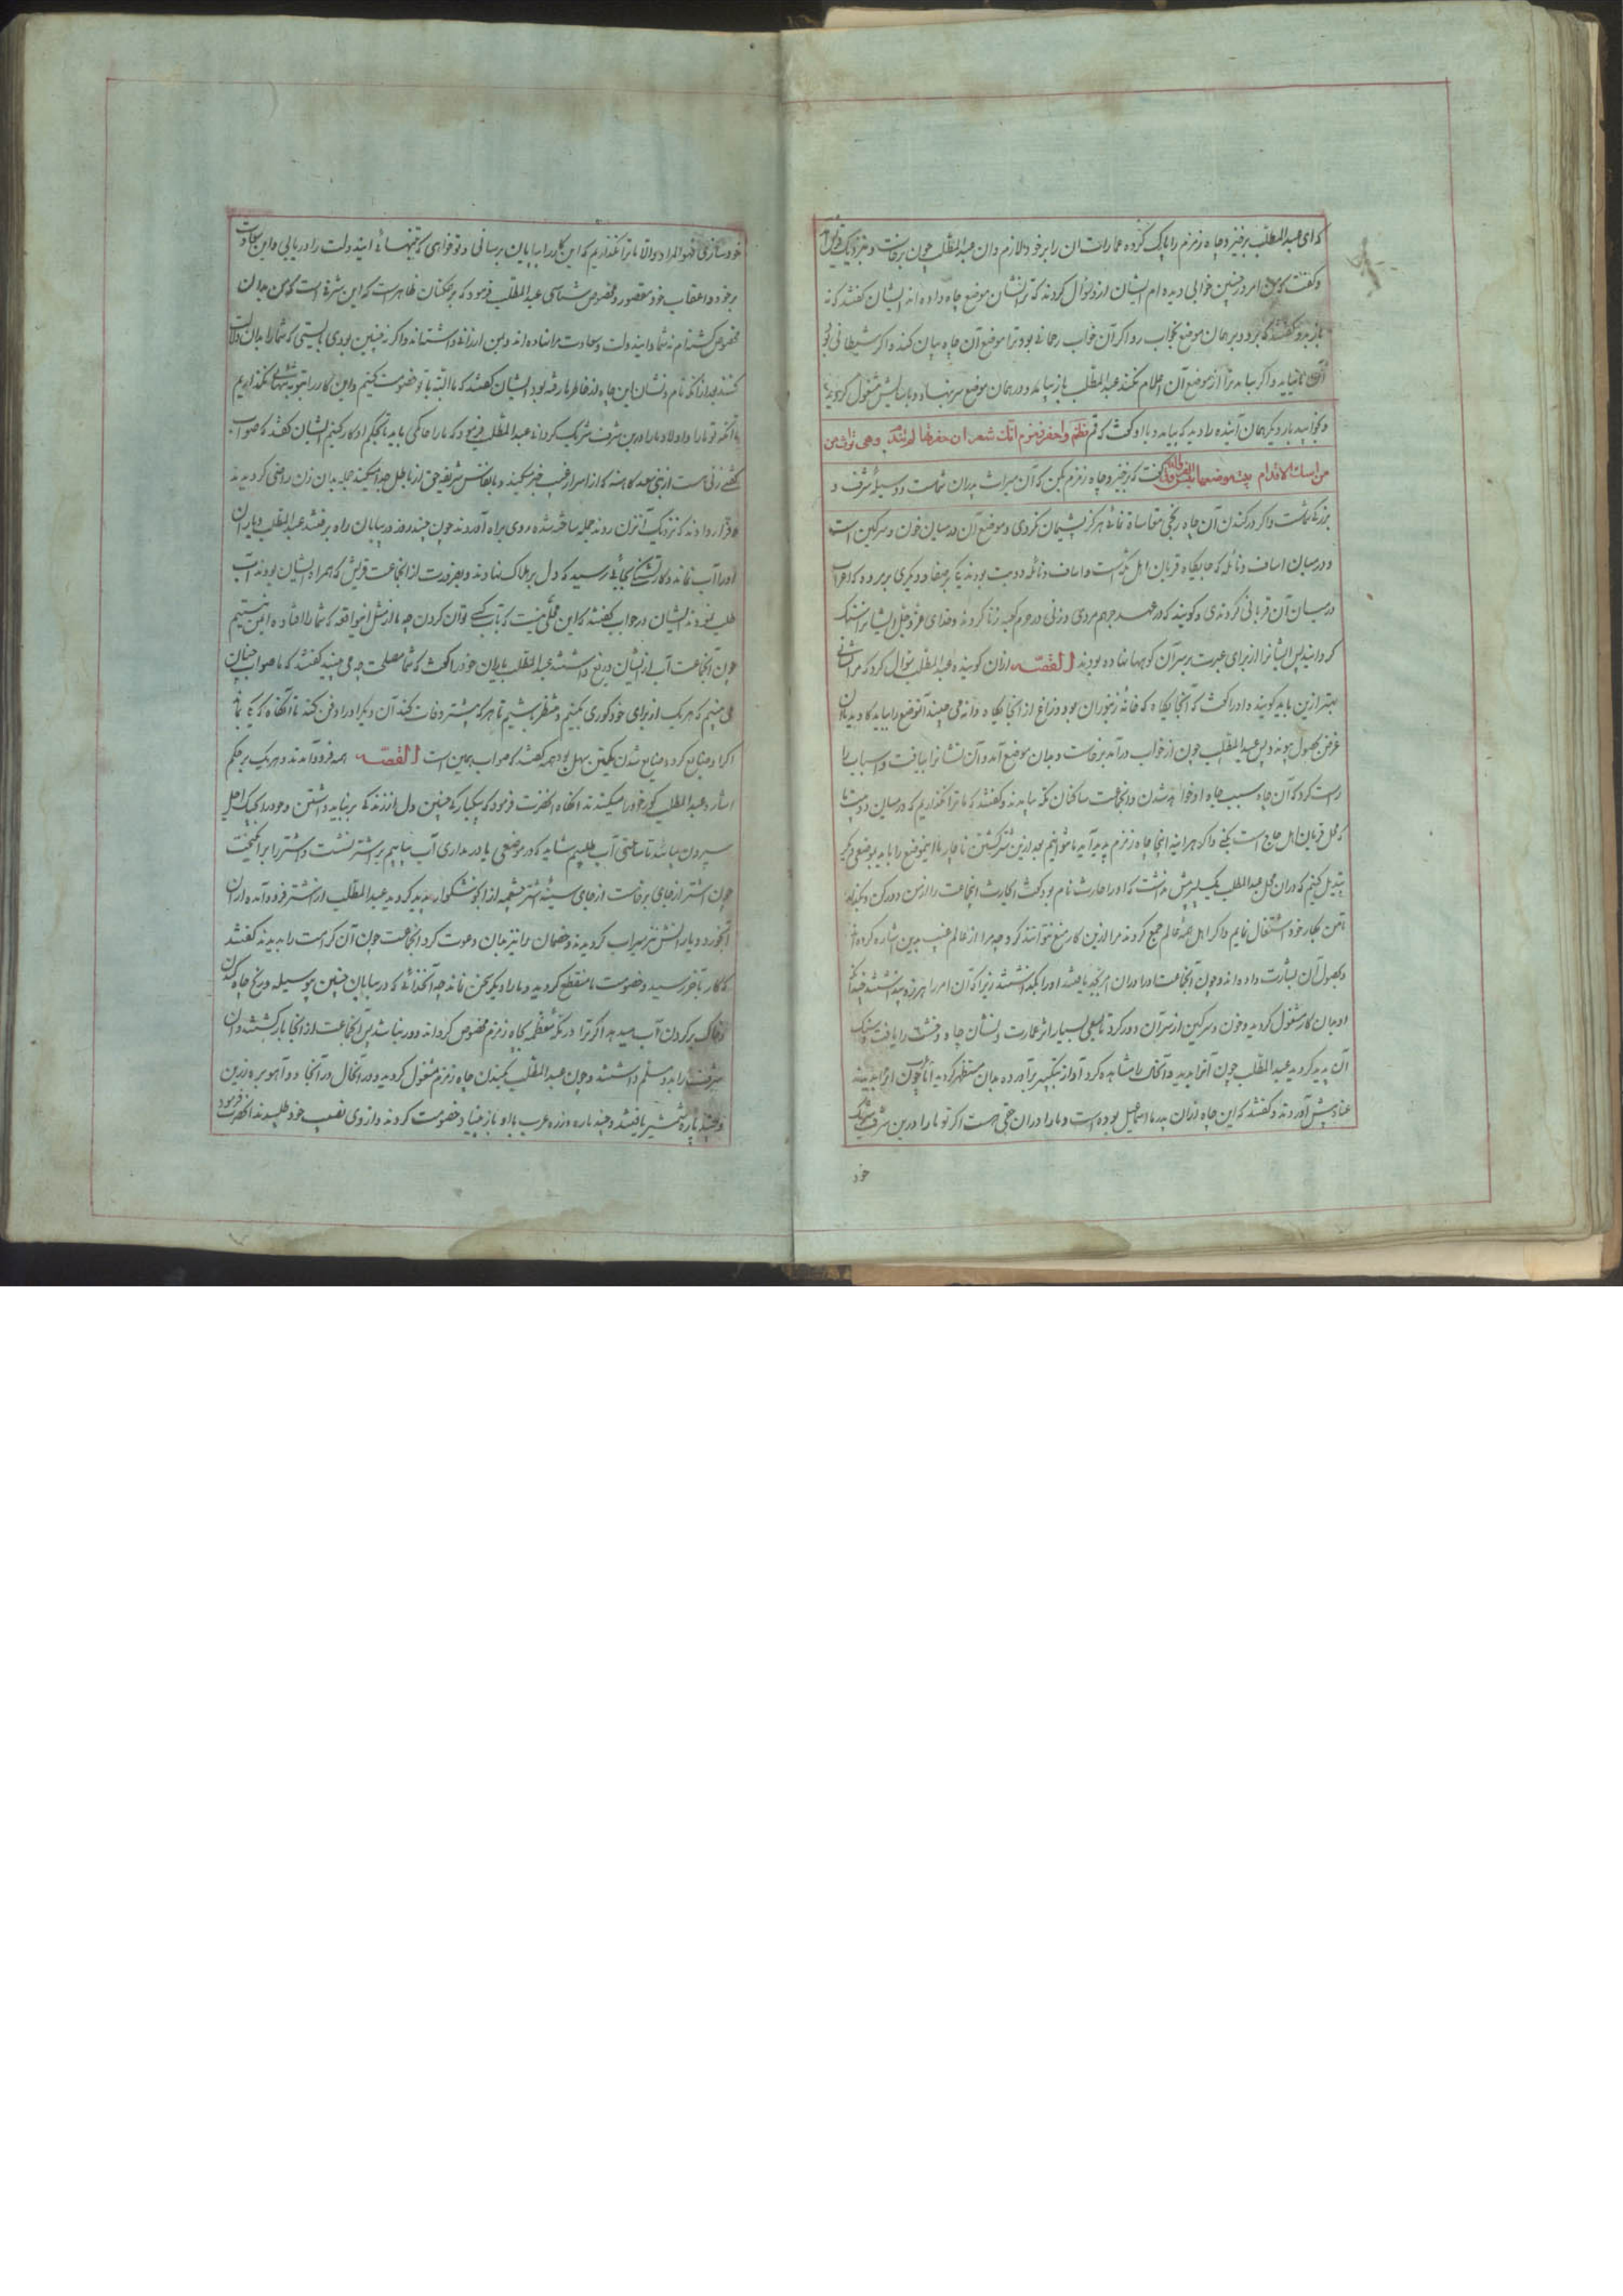 که ای عبدالمطلب برخیز و چاه زمزم را پاک کرده عمارات آن را بر خود لازم دان عبدالمطلب چون برخاست و بنزدیک قریش
و گفت که من امروز چنین خوابی دیده ام ایشان ازو سؤال کردند که ترا نشان موضع چاه داده اند ایشان گفتند که نه
باز برو گفتند که برو و بر همان موضع بخواب رو اگر آن خواب رحمانی بود ترا موضع آن چاه بیان کند و اگر شیطانی بود
نیاید و اگر بیاید ترا از موضع آن اعلام نکند عبدالمطلب باز بیامد و در همان موضع سر بنهاد و باسایش مشغول گردید
و بخوابید بار دیگر همان آینده را دید که بیامد و با او گفت که قم نظم واحفر زمزم انك شعر ان حفرتها لم تندم وهی تراث من
گفت که برخیز و چاه زمزم بکن که آن میراث پدران تست و وسیلهٔ شرف و
بزرگی تست و اگر در کندن آن چاه رنجی مقاساة نمائی هرگز پشیمان نگردی و موضع آن در میان خون و سرکین است
و در میان اساف و نائله که جایگاه قربان اهل مکه است و اساف و نائله دو بت بودند یکی بر صفا و دیگری بر مروه که اعراب
در میان آن قربانی کردندی و گویند که در عهد جرهم مردی و زنی در حرم کعبه زنا کردند و خدای عزوجل ایشانرا سنگ
گردانید پس ایشانرا از برای عبرت بر سر آن کوهها نهاده بودند القصّه ازان گوینده عبدالمطلب سؤال کرد که مرا نشانی
بهتر ازین باید گوینده او را گفت که آنجایگاه که خانهٔ زنبوران بود و زاغ از آنجایگاه دانه می چیند آنموضع را بباید کاوید تا آن
غرض بحصول پیوندد پس عبدالمطلب چون از خواب درآمد برخاست و بدان موضع آمد و آن نشانرا بیافت و اسباب را
راست کرد که آن چاه
که محل قربان اهل حاج است بکنی و اگر هراینه اینجا چاه زمزم پدید آید
تبدیل کنیم که دران محل عبدالمطلب یک پسر بیش نداشت که او را حارث نام بود گفت ای حارث اینجماعت را از من دور کن و بگذار
تا من بکار خود اشتغال نمایم و اگر اهل همهٔ عالم جمع گردند مرا ازین کار منع نتوانند کرد چه مرا از عالم غیب بدین اشاره کرده اند
و بحصول آن بشارت داده اند و چون آنجماعت او را دران امر بجد یافتند او را بگذاشتند زیرا که آن امر را هرزه پنداشتند
او بدان کار مشغول گردید و خون و سرکین از سر آن دور کرد تا بسعی بسیار اثر عمارت و نشان چاه و خشت را یافت و سنگ
آن پدید گردید عبدالمطلب چون آنرا بدید و آنحال را مشاهده کرد آواز بتکبیر برآورده بدان مستظهر گردید
عناد پیش آوردند و گفتند که این چاه ازان پدر ما اسماعیل بوده است و ما را دران حقی هست اگر تو ما را درین شرف شریک
خود
خود سازی فهو المراد والا ما ترا نگذاریم که این کار را بپایان برسانی و تو خواهی که بتنهائی ایندولت را دریابی و این سعادت
بر خود و اعقاب خود مقصور و مخصوص شناسی عبدالمطلب فرمود که بر همگنان ظاهر است که این شرفی است که من بدان
مخصوص گشته ام نه شما و ایندولت و سعادت مرا نهاده اند و بمن ارزانی داشته اند و اگر نه چنین بودی بایستی که شما را بدان دلالت
کنند بعد ازانکه نام و نشان این چاه از خاطرها رفته بود ایشان گفتند که ما البته با تو خصومت کنیم و این کار را بتو بتنهائی نگذاریم
یا آنکه تو ما را و اولاد ما را درین شرف شریک گردانی عبدالمطلب فرمود که ما را حاکمی باید تا بحکم او کار کنیم ایشان گفتند که صواب
زنی هست از بنی سعد کاهنه که از اسرار غیب خبر میکند و بانفس شریف حق از باطل جدا میکند جمله بدان زن راضی گردیدند
و قرار دادند که نزدیک آنزن روند جمله ساخته شده روی براه آوردند چون چند روز در بیابان راه برفتند عبدالمطلب و یاران
او را آب نماند و کار تشنگی بجائی رسید که دل بر هلاک نهادند و بضرورت از انجماعت قریش که همراه ایشان بودند آب
طلب نمودند ایشان در جواب گفتند که این محلی نیست که آب بکسی توان کردن چه ما از مثل اینواقعه که شما را افتاده ایمن نیستیم
چون آنجماعت آب از ایشان دریغ داشتند عبدالمطلب با یاران خود را گفت که شما مصلحت چه می بینید گفتند که ما صواب چنان
می بینیم که هر یک از برای خود گوری بکنیم و منتظر باشیم تا هر که پیشتر وفات کند آن دیگر او را دفن کند تا آنگاه که یکی بماند
اگر او ضایع گردد ضایع شدن یکتن سهل بود همه گفتند که صواب همین است القصّه همه فرو آمدند و هر یک بر حکم
اشاره عبدالمطلب گور خود را میکندند انگاه انحضرت فرمود که بیکبارگی چنین دل از زندگی برنباید داشتن و خود را بچنگ اجل
سپردن بیائید تا ساعتی آب طلبیم شاید که در موضعی یا در مداری آب بیابیم بر اشتر نشست و اشتر را برانگیخت
چون اشتر از جای برخاست از جای سینهٔ شتر چشمه از آب خوشگوار پدید گردید عبدالمطلب از اشتر فرود آمده ازان
آبخورد و یارانش نیز سیراب گردیدند و خصمان را نیز بدان دعوت کرد انجماعت چون آن کرامت را بدیدند گفتند
که کار بآخر رسید و خصومت ما منقطع گردید و ما را دیگر سخن نماند چه آنخدائی که در بیابان چنین بیوسیله و رنج چاه کندن
و خاک بر کردن آب میدهد اگر ترا در مکهٔ معظمه بچاه زمزم مخصوص گرداند دور نباشد پس آنجماعت از انجا بازگشتند و آن
شرف را بدو مسلم داشتند و چون عبدالمطلب بکندن چاه زمزم مشغول گردید و در آنحال در آنجا دو آهو بره زرین
و چند پاره شمشیر یافتند و چند پاره زره عرب با او باز بنیاد خصومت کردند و از وی نصیب خود طلبیدند انحضرت فرمود